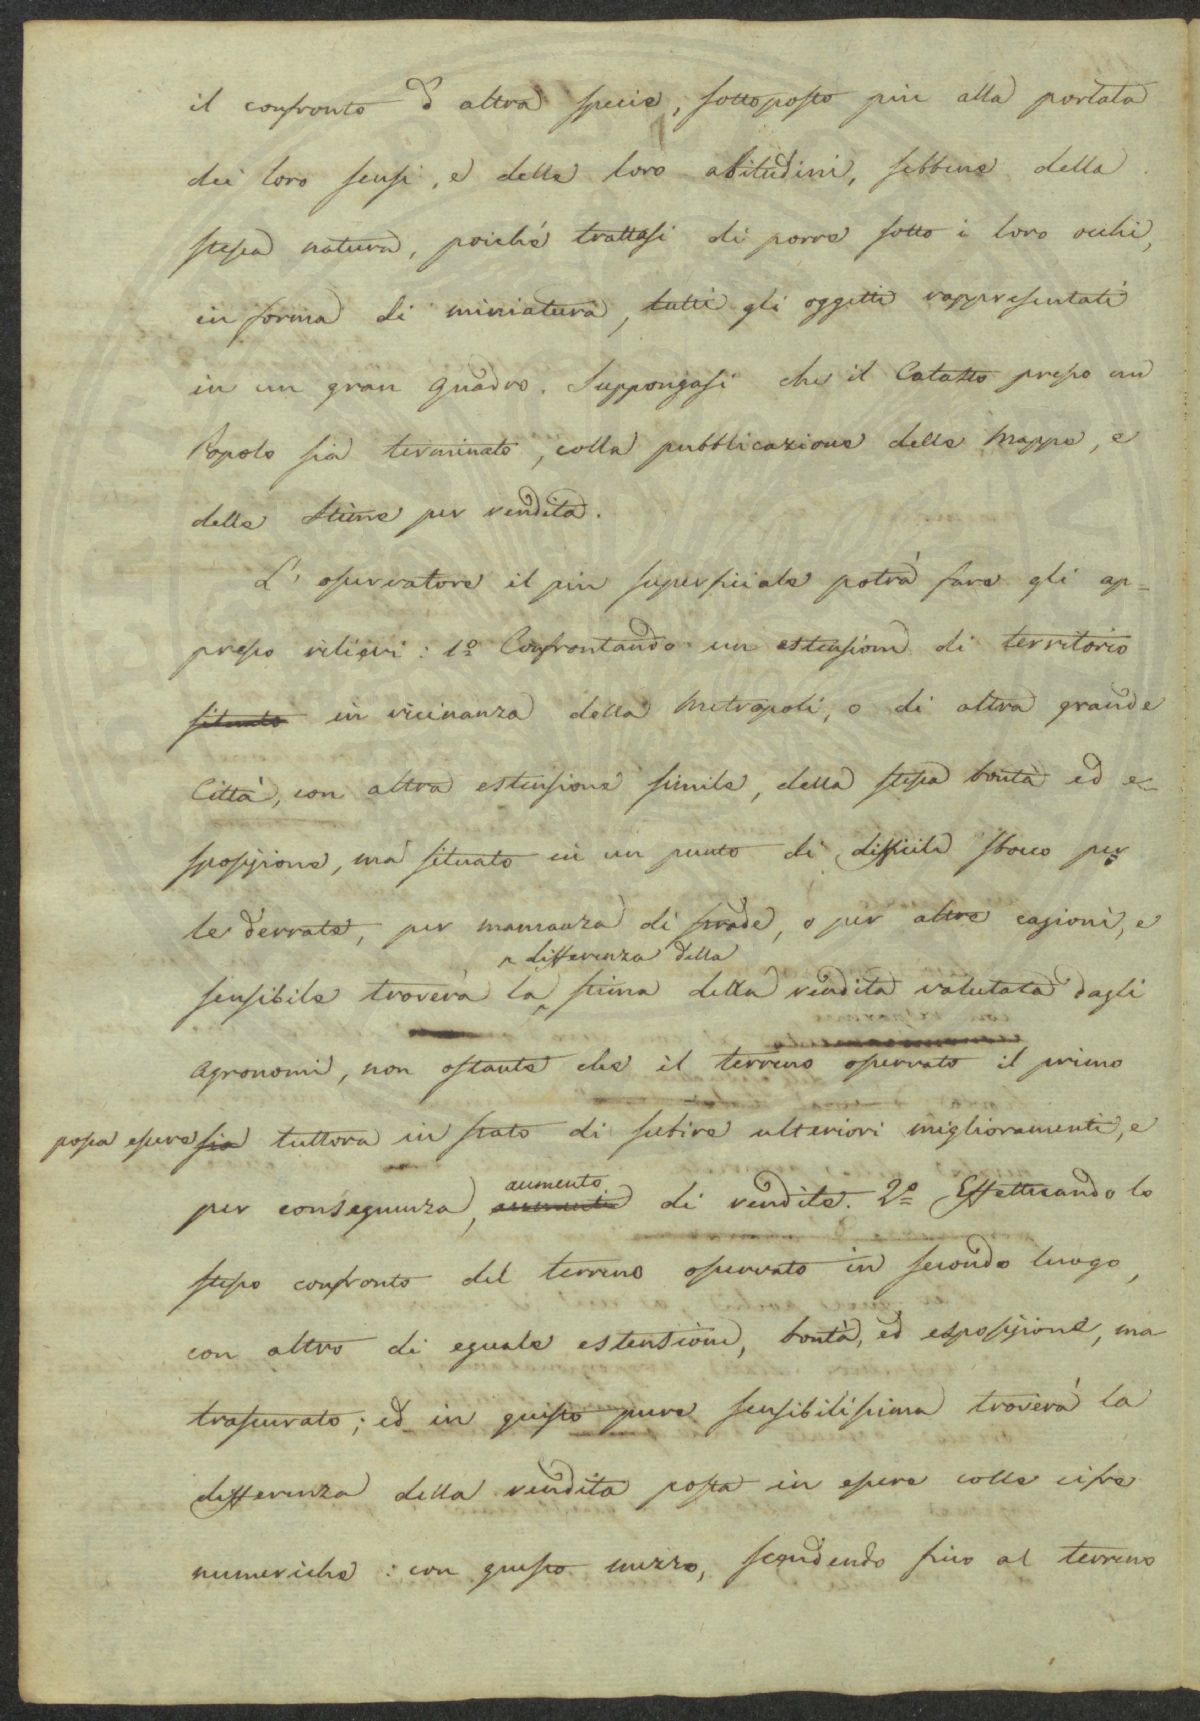 il confronto d'altra specie, sottoposto piu alla portata
dei loro sensi, e delle loro abitudini, sebbene della
stessa natura, poichè trattasi di porre sotto i loro occhi,
in forma di miniatura, tutti gli oggetti rappresentati
in un gran quadro. Suppongasi che il Catasto presso un
Popolo sia terminato, colla pubblicazione delle Mappe, e
delle Stime per rendita.
L'osservatore il piu superficiale potrà fare gli ap=
presso rilievi: 1º Confrontando un estensione di territorio
situato in vicinanza della Metropoli, o di altra grande
Città, con altra estensione simile, della stessa bontà ed e=
sposizione, ma situato in un punto di difficile sbocco per
le derrate, per mancanza di strade, o per altre cagioni, e
differenza della
sensibile troverà la stima della rendita valutata dagli
Agronomi, non ostante che il terreno osservato il primo
possa essere sia tuttora in stato di subire ulteriori miglioramenti, e
aumento
per conseguenza, di rendite. 2º Effettuando lo
stesso confronto del terreno osservato in secondo luogo,
con altro di eguale estensione, bontà, ed esposizione, ma
trascurato; ed in questo pure sensibilissima troverà la
differenza della rendita posta in essere colle cifre
numeriche: con questo mezzo, scendendo fino al terreno